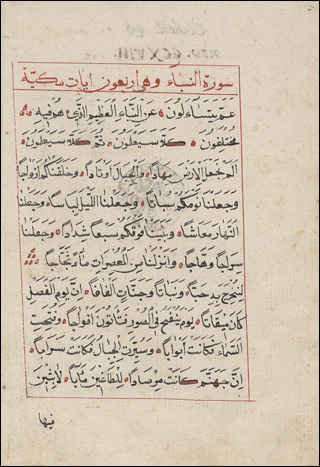 سورة النبأ وهي اربعون ايات مكية
عم يتساءلون عن النبأ العظيم الذي هم فيه
مختلفون كلا سيعلمون ثم كلا سيعلمون
الم نجعل الارض مهادا والجبال اوتادا وخلقناكم ازواجا
وجعلنا نومكم سباتا وجعلنا الليل لباسا وجعلنا
النهار معاشا وبنينا فوقكم سبعا شدادا وجعلنا
سراجا وهاجا وانزلنا من المعصرات ماء ثجاجا
لنخرج به حبا ونباتا وجنات الفافا ان يوم الفصل
كان ميقاتا يوم ينفخ في الصور فتأتون افواجا وفتحت
السماء فكانت أبوابا وسيرت الجبال فكانت سرابا
ان جهنم كانت مرصادا للطاغين مآبا لابثين
فيها